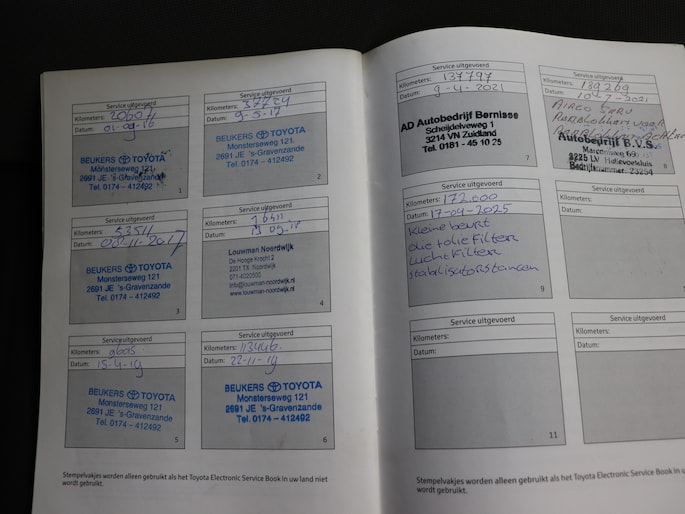 Service uitgevoerd
Kilometers: 20604
Datum: 01-09-16
BEUKERS TOYOTA
Monsterseweg 121
2691 JE 's-Gravenzande
Tel. 0174 - 412492
1
Service uitgevoerd
Kilometers: 37724
Datum: 9-5-17
BEUKERS TOYOTA
Monsterseweg 121
2691 JE 's-Gravenzande
Tel. 0174 - 412492
2
Service uitgevoerd
Kilometers: 53511
Datum: 08-11-2017
BEUKERS TOYOTA
Monsterseweg 121
2691 JE 's-Gravenzande
Tel. 0174 - 412492
3
Service uitgevoerd
Kilometers:
Datum: 13 09 18
Louwman Noordwijk
De Hooge Krocht 2
2201 TX Noordwijk
071-4020300
info@louwman-noordwijk.nl
www.louwman-noordwijk.nl
4
Service uitgevoerd
Kilometers:
Datum: 15-4-19
BEUKERS TOYOTA
Monsterseweg 121
2691 JE 's-Gravenzande
Tel. 0174 - 412492
5
Service uitgevoerd
Kilometers: 113446
Datum: 22-11-19
BEUKERS TOYOTA
Monsterseweg 121
2691 JE 's-Gravenzande
Tel. 0174 - 412492
6
Stempelvakjes worden alleen gebruikt als het Toyota Electronic Service Book in uw land niet
wordt gebruikt.
Service uitgevoerd
Kilometers: 137797
Datum: 9-4-2021
AD Autobedrijf Bernisse
Scheijdelveweg 1
3214 VN Zuidland
Tel. 0181 - 45 10 25
7
Service uitgevoerd
Kilometers: 139269
Datum:
AIRCO BEURT
Autobedrijf B.V.S.
Marconiweg 69
3225 LV Hellevoetsluis
Bedrijfsnummer: 23254
8
Service uitgevoerd
Kilometers: 172.000
Datum: 17-04-2025
Kleine beurt
olie folie Filter
Lucht Filter
stabilisatorstangen
9
Service uitgevoerd
Kilometers:
Datum:
Service uitgevoerd
Kilometers:
Datum:
11
Service uitgevoerd
Kilometers:
Datum:
Stempelvakjes worden alleen gebruikt als het Toyota Electronic Service Book in uw
wordt gebruikt.